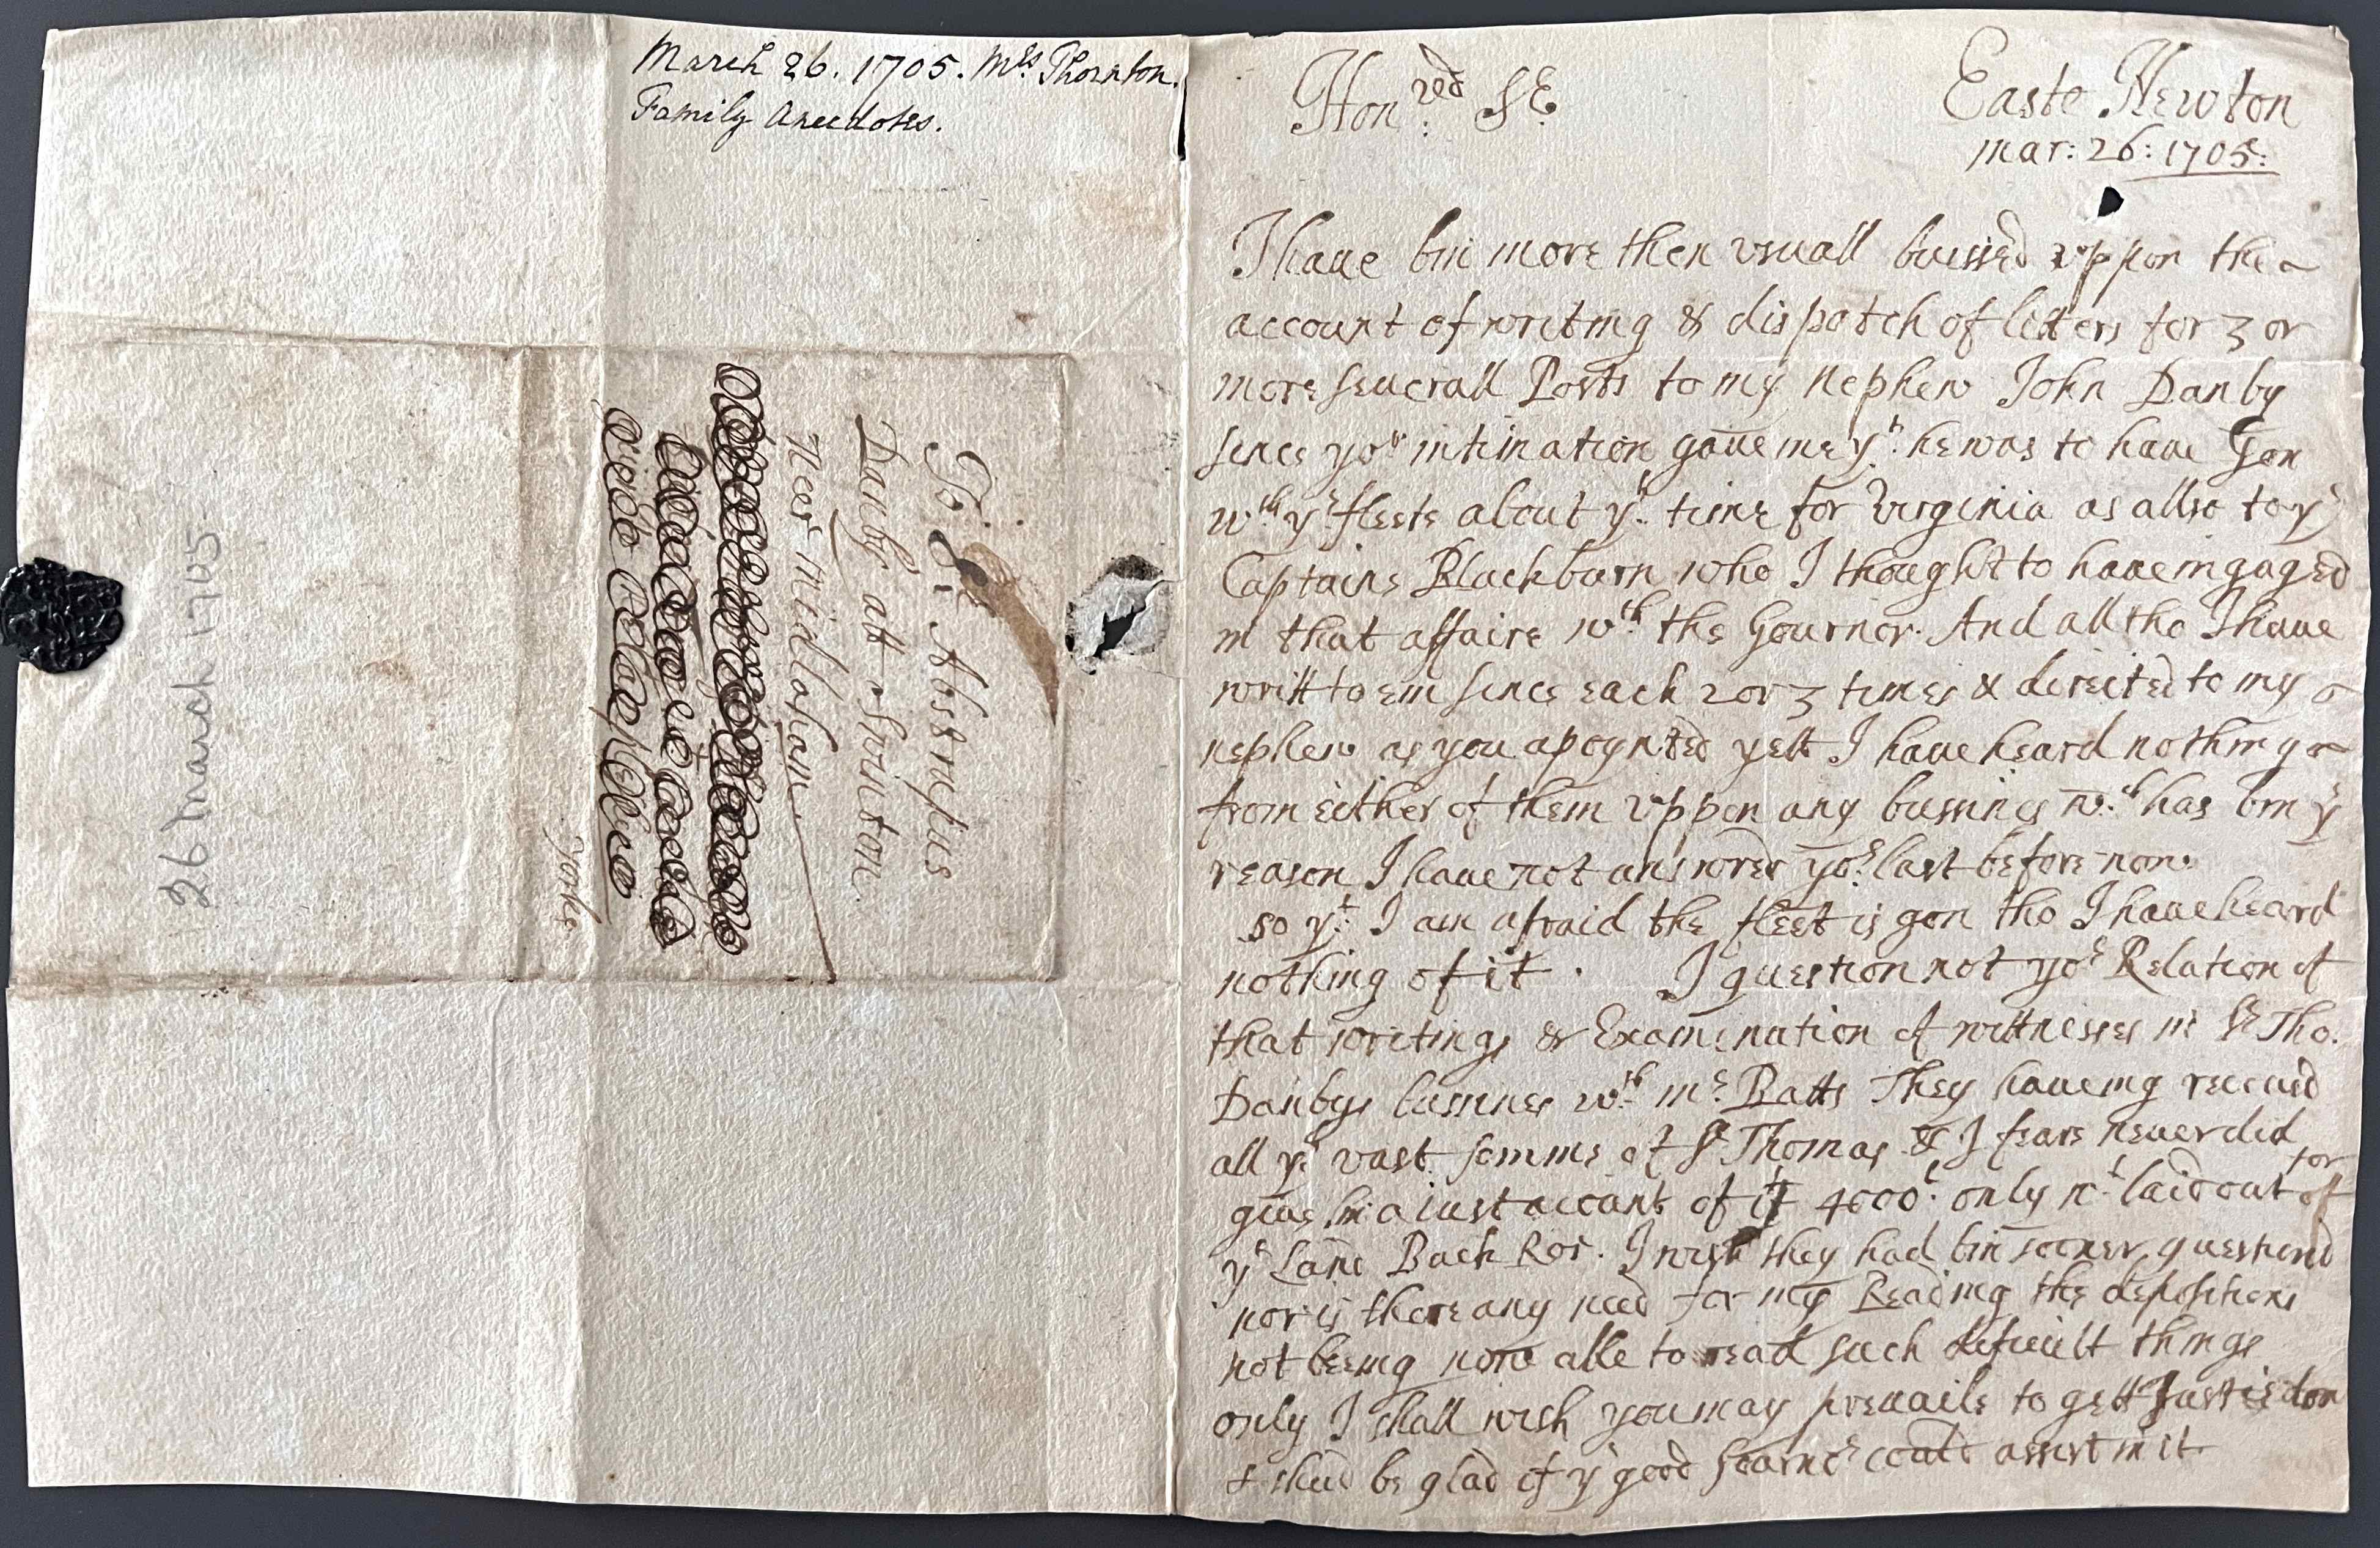 March 26. 1705. Mrs. Thornton.
Family Anecdotes.
26 March 1705.
To: Sr. Abstrupus
Danby att Swinton
Neer Middleham
Yorke
Honred. Sr.
Easte Newton
Mar: 26: 1705:
I haue bin more then vsuall buissed vppon the
account of writing & dispatch of letters for 3 or
more seuerall Posts to my Nephew John Danby
since yor intimation gaue me yt. he was to haue Gon
wth. ye. fleete about yt. time for Virginia as allso to ye
Captaine Blackburn who I thought to haue ingaged
in that affaire wth. the Gouernor. And all tho I haue
writt to em since each 2 or 3 times & derected to my
nephew as you apoynted yett I haue heard nothing
from either of them vppon any bussines wch. has bin ye
reason I haue not answred yor. last before now.
so yt. I am afraid the fleet is gon tho I haue heard
nothing of it. I question not yor Relation of
that writings & Examination of wittnesses in Sr Tho.
Danbys bussines wth. Mr. Batts They haueing receued
all ye vast somme of Sr Thomas & I feare neuer did
giue him a iust accunt of it 4000l. only wt. laid out of for
ye Lane Back Ros. I wish they had bin sooner questiond
nor is there any need for my Reading the depositions
not beeing now able to read such deficult things
only I shall wish you may preuaile to gett Justis don
& shud be glad if ye good could assist in it